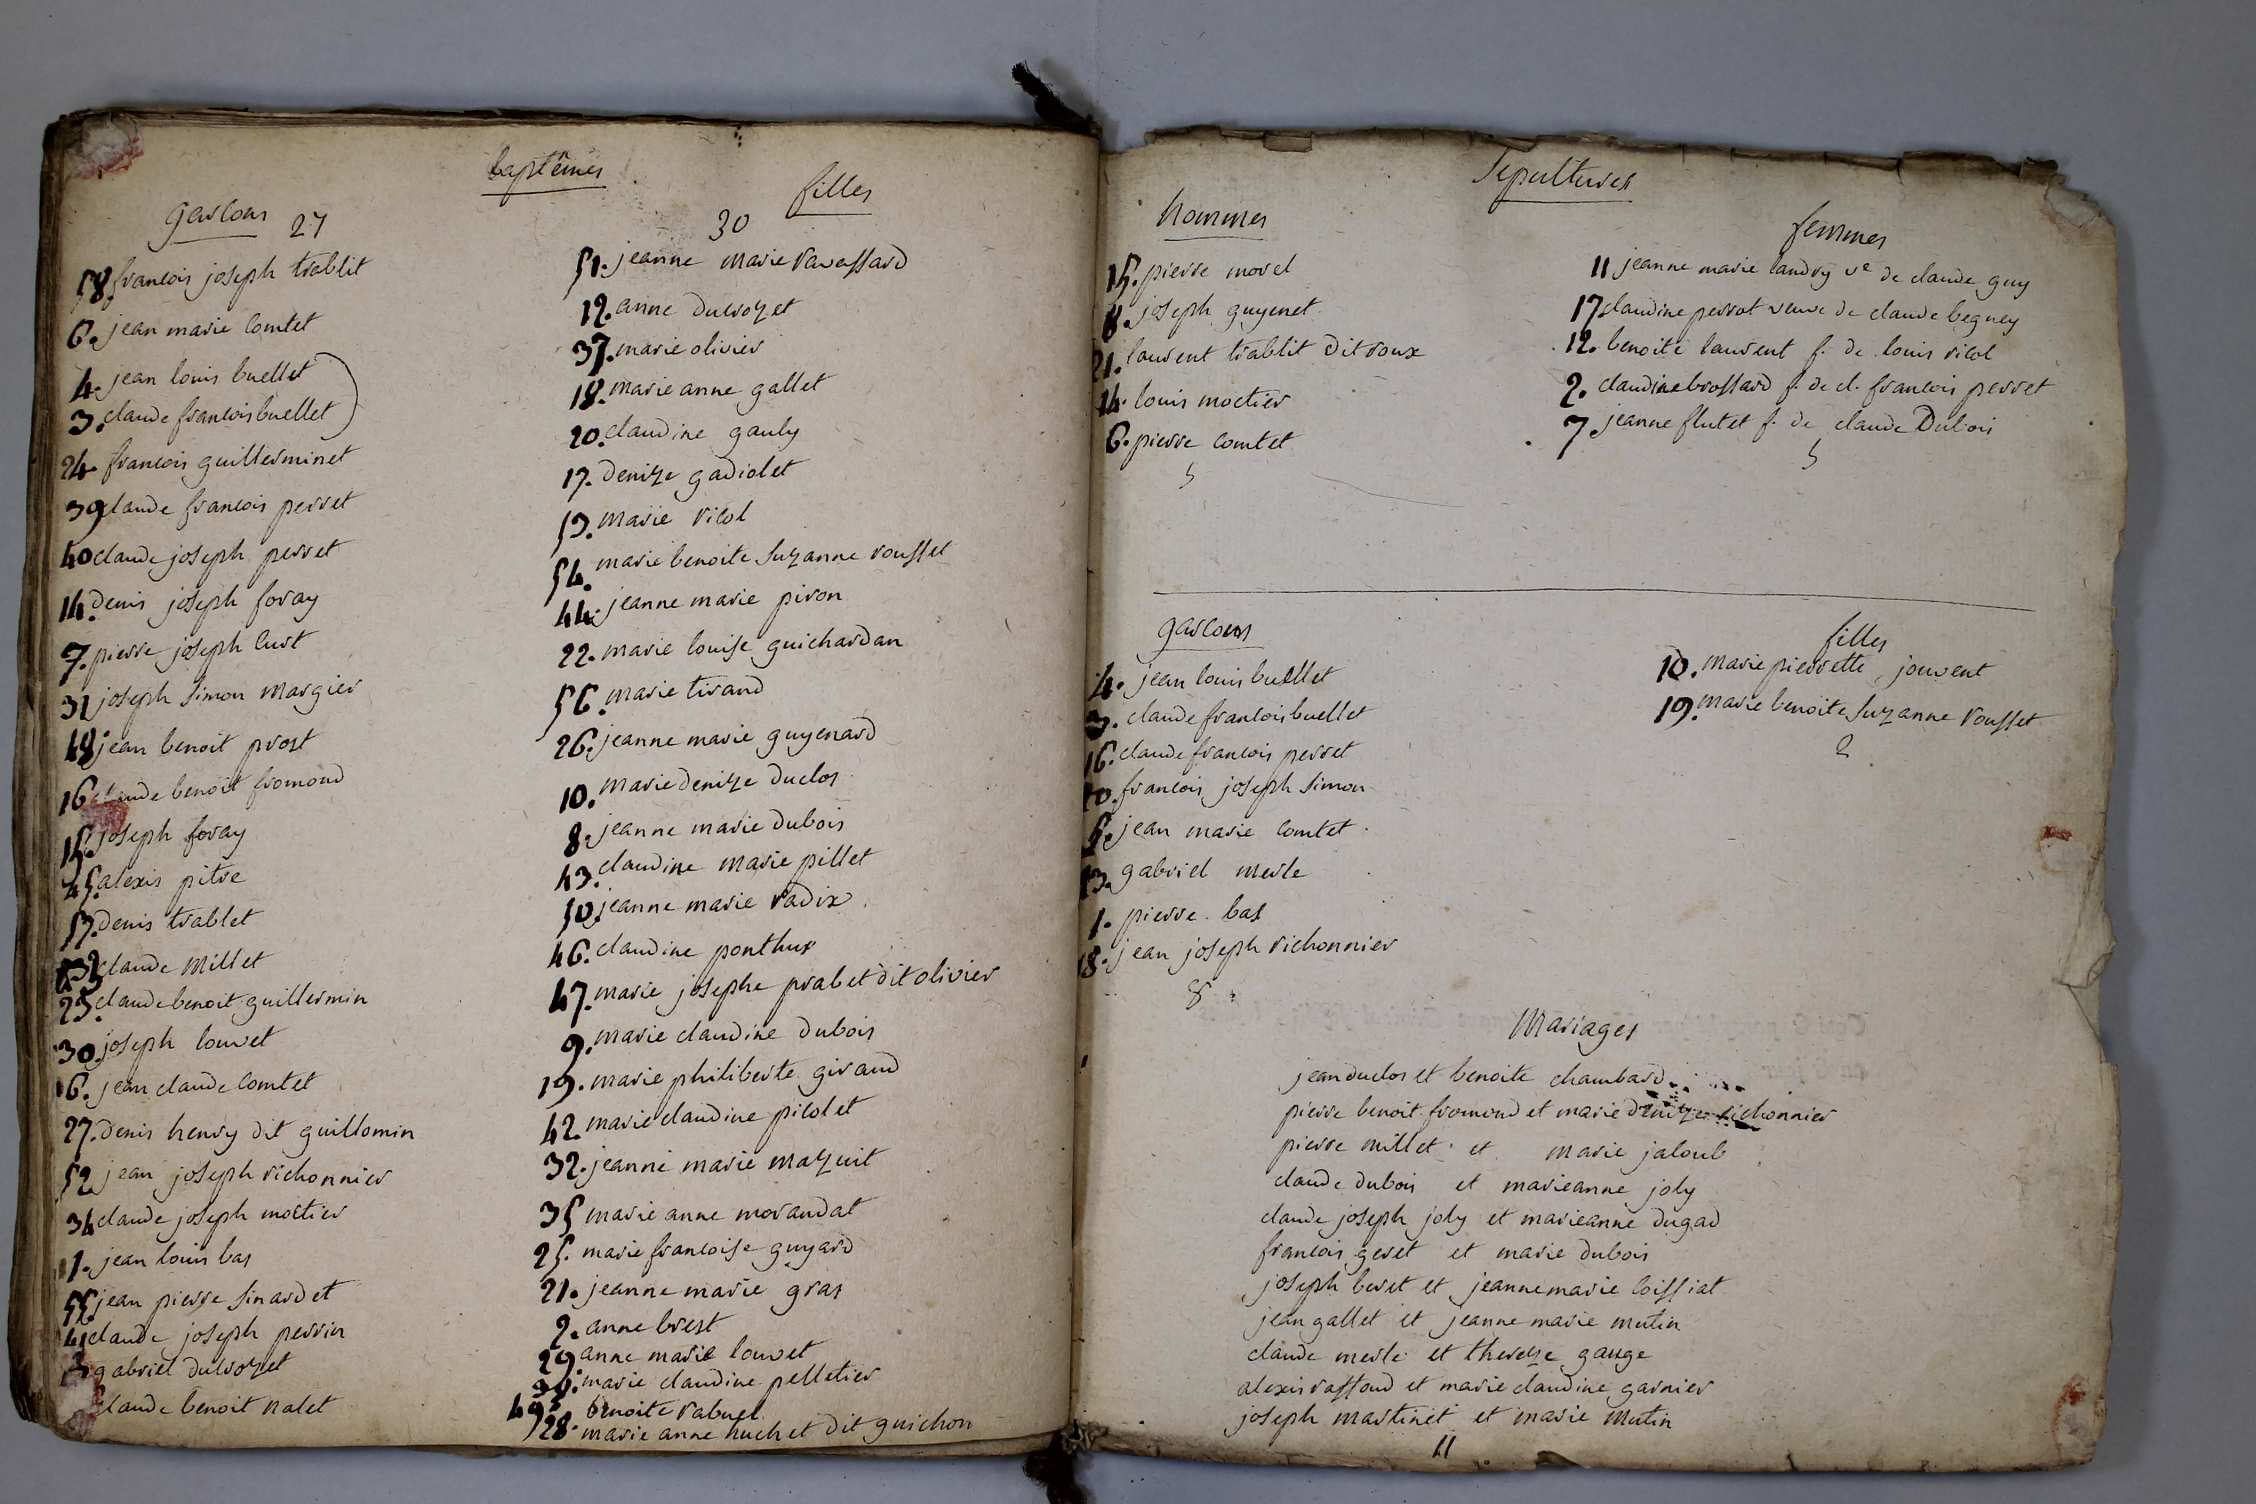 baptêmes
garcons 27
58. francois joseph trablit
6. jean marie comtet
4. jean louis buellet
3. claude francois buellet
24. francois guilleminet
39 claude francois perret
40 claude joseph perret
14. denis joseph foray
7. pierre joseph curt
31 joseph simon margier
48. jean benoit prost
16 claude benoit fromond
15. joseph foray
45. alexis pitre
57. denis trablet
claude millet
23. claude benoit guillermin
30. joseph louvet
6. jean claude comtet
27. denis henry dit guillomin
52 jean joseph richonnier
34 claude joseph moctier
1. jean louis bas
55. jean pierre sinardet
41 claude joseph perrin
gabriel duvrozet
claude benoit nalet
filles
30
51. jeanne marie ravassard
12. anne duvrozet
37. marie olivier
18. marie anne gallet
20. claudine gauly
17. denize gadiolet
53. marie ricol
54. marie benoite suzanne rousset
44. jeanne marie piron
22. marie louise guichardan
56. marie tirand
26. jeanne marie guyenard
10. marie denize duclos
8. jeanne marie dubois
43. claudine marie pillet
50. jeanne marie radix
46. claudine ponthus
47. marie josephe prabet dit olivier
9. marie claudine dubois
19. marie philiberte giraud
42. marie claudine picolet
32. jeanne marie mazuit
35 marie anne morandat
25. marie francoise guyard
21. jeanne marie gras
2. anne brest
29 anne marie louvet
38. marie claudine pelletier
49. benoite rabuel
28. marie anne huchet dit guichon
Sepultures
hommes
15. pierre morel
8. joseph guyenet
21. laurent trablit dit roux
14. louis moctier
6. pierre comtet
5
femmes
11 jeanne marie landry ve de claude guy
17 claudine perrot veuve de claude beguey
12. benoite laurent f. de louis ricol
2. claudine brossard f. de cl. francois perret
7. jeanne flutet f. de claude Dubois
5
garcons
4. jean louis buellet
3. claude francois buellet
16. claude francois perret
20. francois joseph simon
5. jean marie comtet
13. gabriel merle
1. pierre bas
18. jean joseph richonnier
8
filles
10. marie pierrette jouvent
19. marie benoite suzanne rousset
2
Mariages
jean duclos et benoite chambard
pierre benoit fromond et marie denize richonnier
pierre millet et marie jaloub
claude dubois et marieanne joly
claude joseph joly et marieanne dugad
francois geret et marie dubois
joseph beret et jeanne marie loissiat
jean gallet et jeanne marie mutin
claude merle et thereze gauge
alexis raffoud et marie claudine garnier
joseph martinet et marie mutin
11